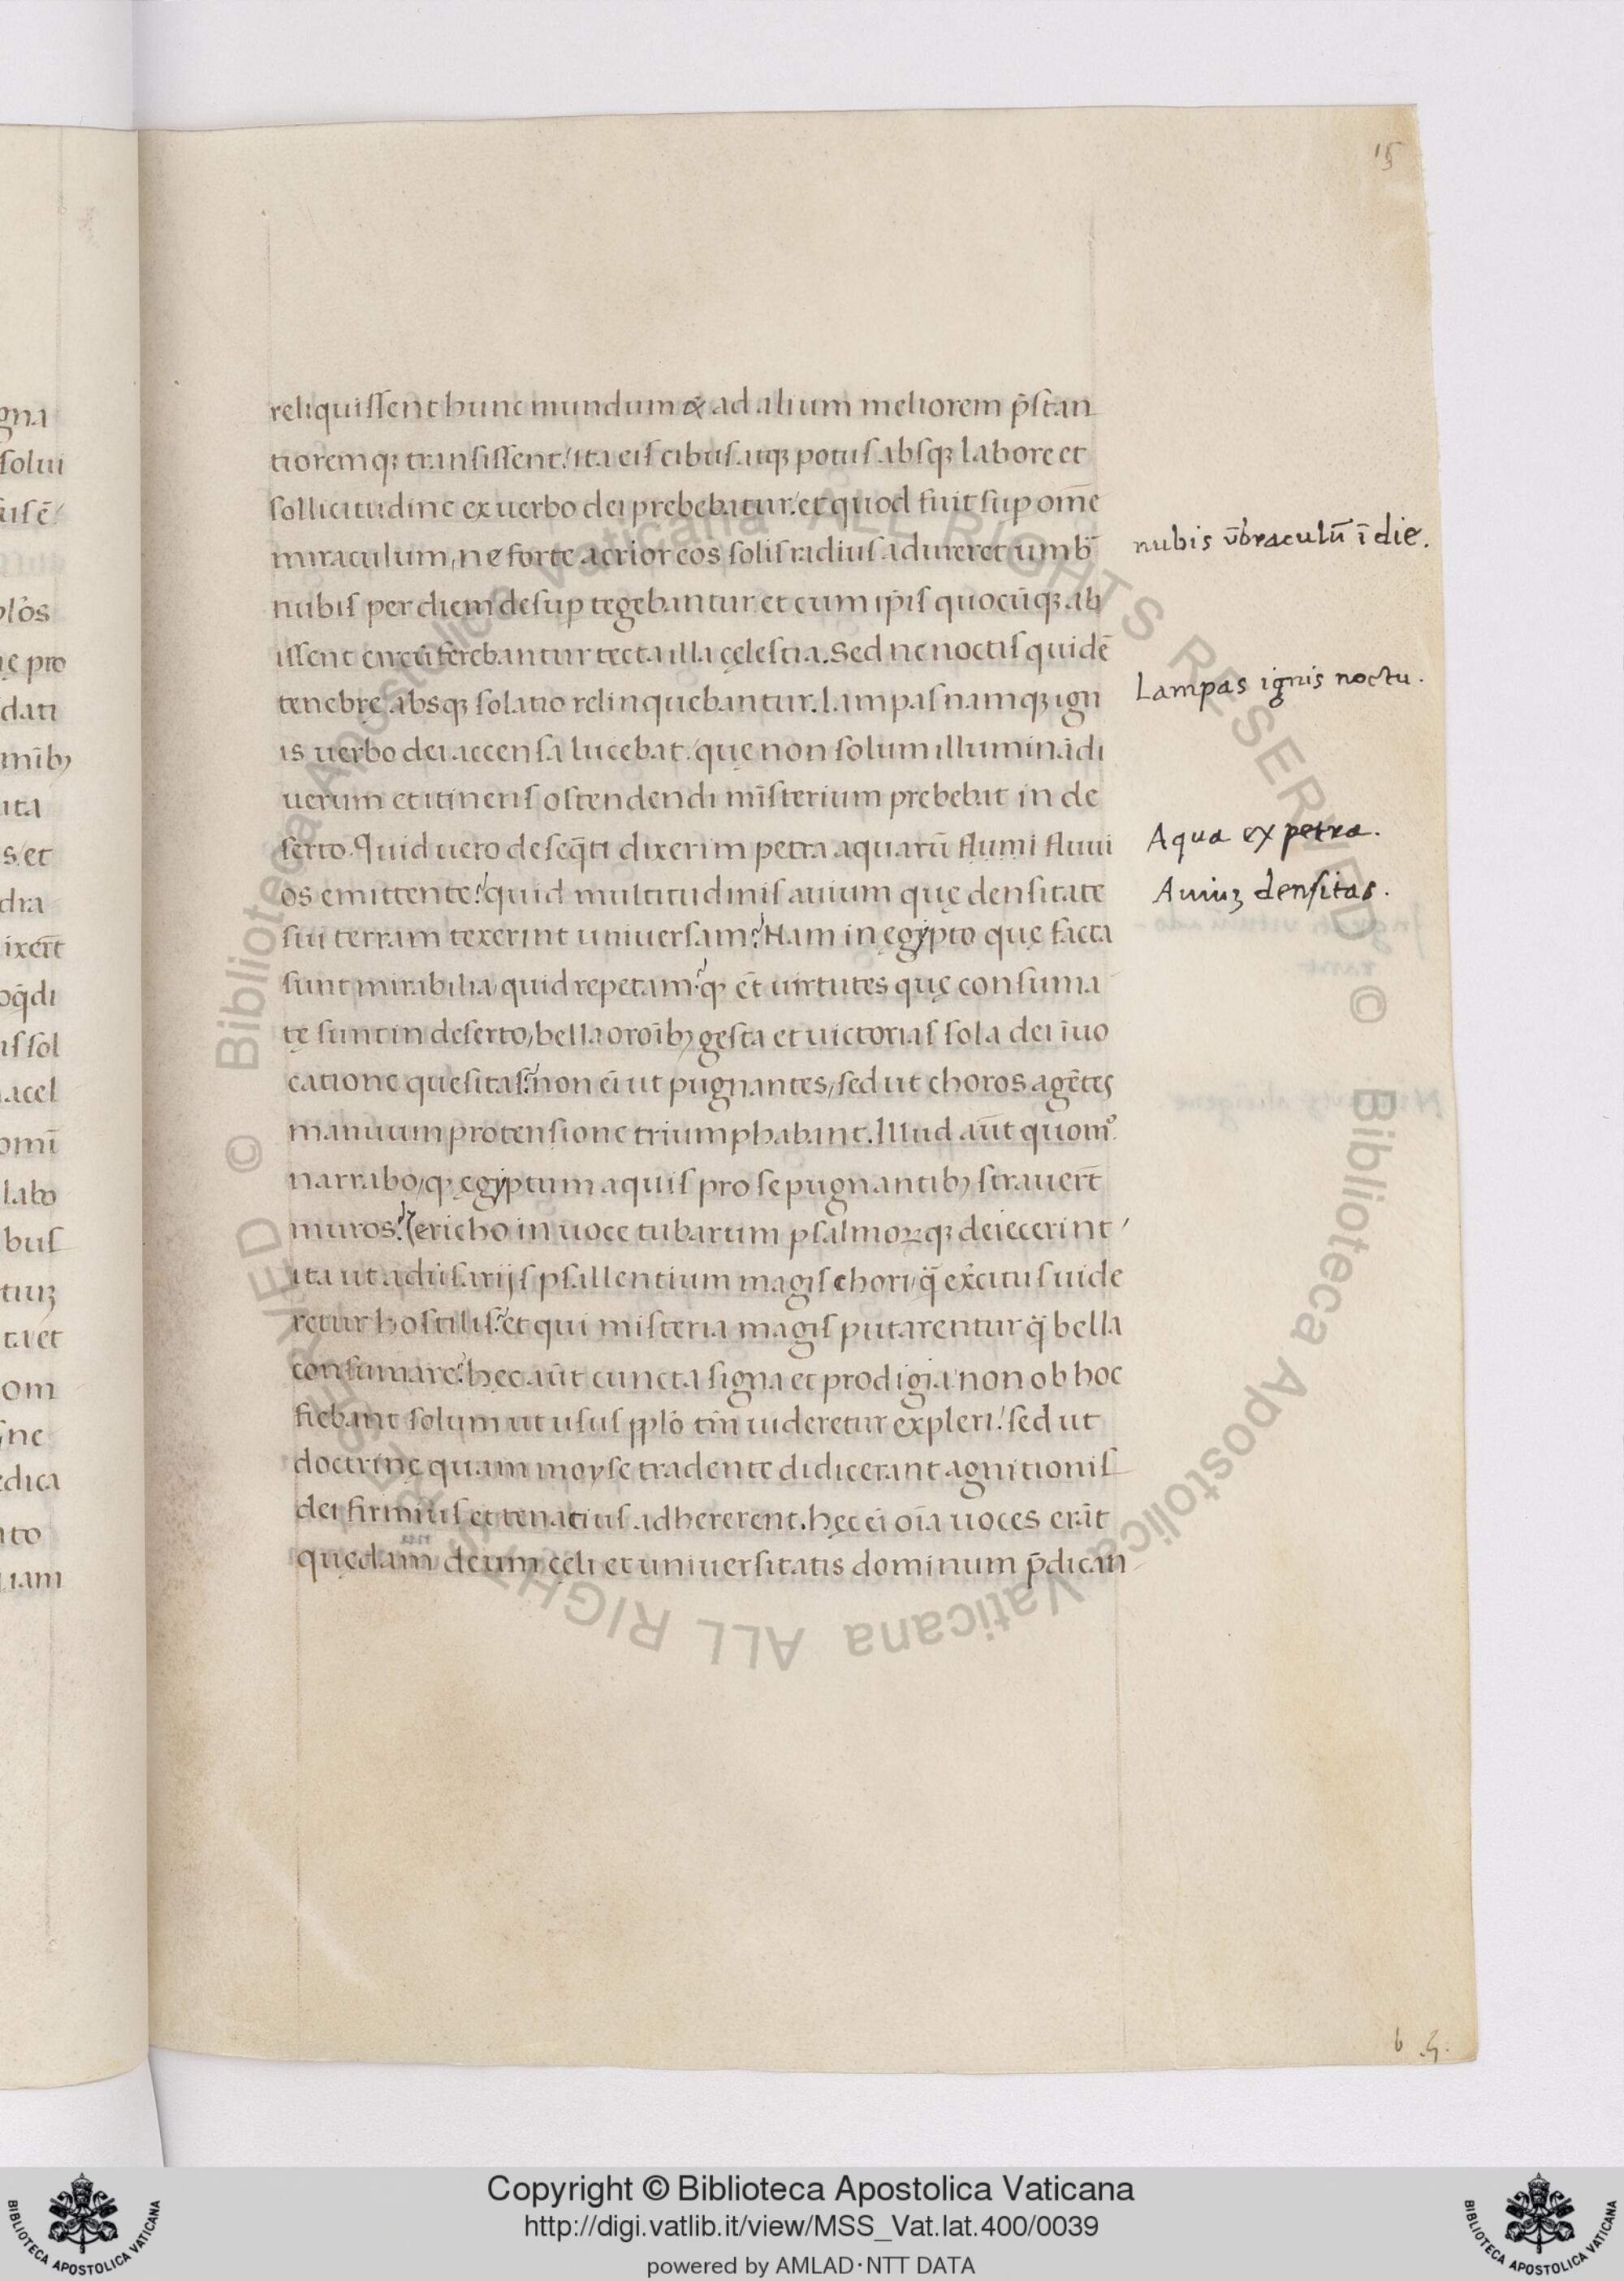 15
reliquissent hunc mundum & ad alium meliorem p̄stan
tioremqꝫ transissent, ita eis cibus atqꝫ potus absqꝫ labore et
sollicitudine ex uerbo dei prebebatur, et quod fuit sup om̄e
miraculum, ne forte acrior eos solis radius adureret umb̄
nubis per diem desup tegebantur et cum ip̄is quocūqꝫ ab
issent circū ferebantur tecta illa cęlestia. Sed ne noctis quidē
tenebrę absqꝫ solatio relinquebantur. Lampas namqꝫ ign
is uerbo dei accensa lucebat, quę non solum illuminādi
uerum et itineris ostendendi mīsterium prebebat in de
serto. Quid uero de seq̄ti dixerim petra aquarū flumi fluui
os emittente? quid multitudinis auium quę densitate
sui terram texerint uniuersam? Nam in egypto quę facta
sunt mirabilia, quid repetam? qꝫ et uirtutes quę consuma
tę sunt in deserto, bella oroībꝫ gesta et uictorias sola dei īuo
catione quesitas? non ei ut pugnantes, sed ut choros agētes
manuum protensione triumphabant. Illud aūt quomº
narrabo, qꝫ egyptum aquis pro se pugnantibꝫ strauer̄t
muros? Iericho in uoce tubarum psalmoꝝqꝫ deiecerint,
ita ut aduˀsarijs psallentium magis chori, q̄ exˀcitus uide
retur hostilis? et qui misteria magis putarentur q̄ bella
consumare? hec aūt cuncta signa et prodigia non ob hoc
fiebant solum ut usus pplo tm̄ uideretur expleri, sed ut
doctrinę quam moyse tradente didicerant agnitionis
dei firmius et tenatius adhererent. hęc ei oīa uoces erāt
quędam deum cęli et uniuersitatis dominum p̄dican
nubis ūbraculū ī die.
Lampas ignis noctu.
Aqua ex petra.
Auiuꝫ densitas.
gna
solui
dati
ita
s, et
dra
bus
ta et
om
ne
dica
to
Copyright © Biblioteca Apostolica Vaticana
http://digi.vatlib.it/view/MSS_Vat.lat.400/0039
powered by AMLAD·NTT DATA
BIBLIOTECA APOSTOLICA VATICANA
BIBLIOTECA APOSTOLICA VATICANA
© Biblioteca Apostolica Vaticana ALL RIGHTS RESERVED
© Biblioteca Apostolica Vaticana ALL RIGHTS RESERVED